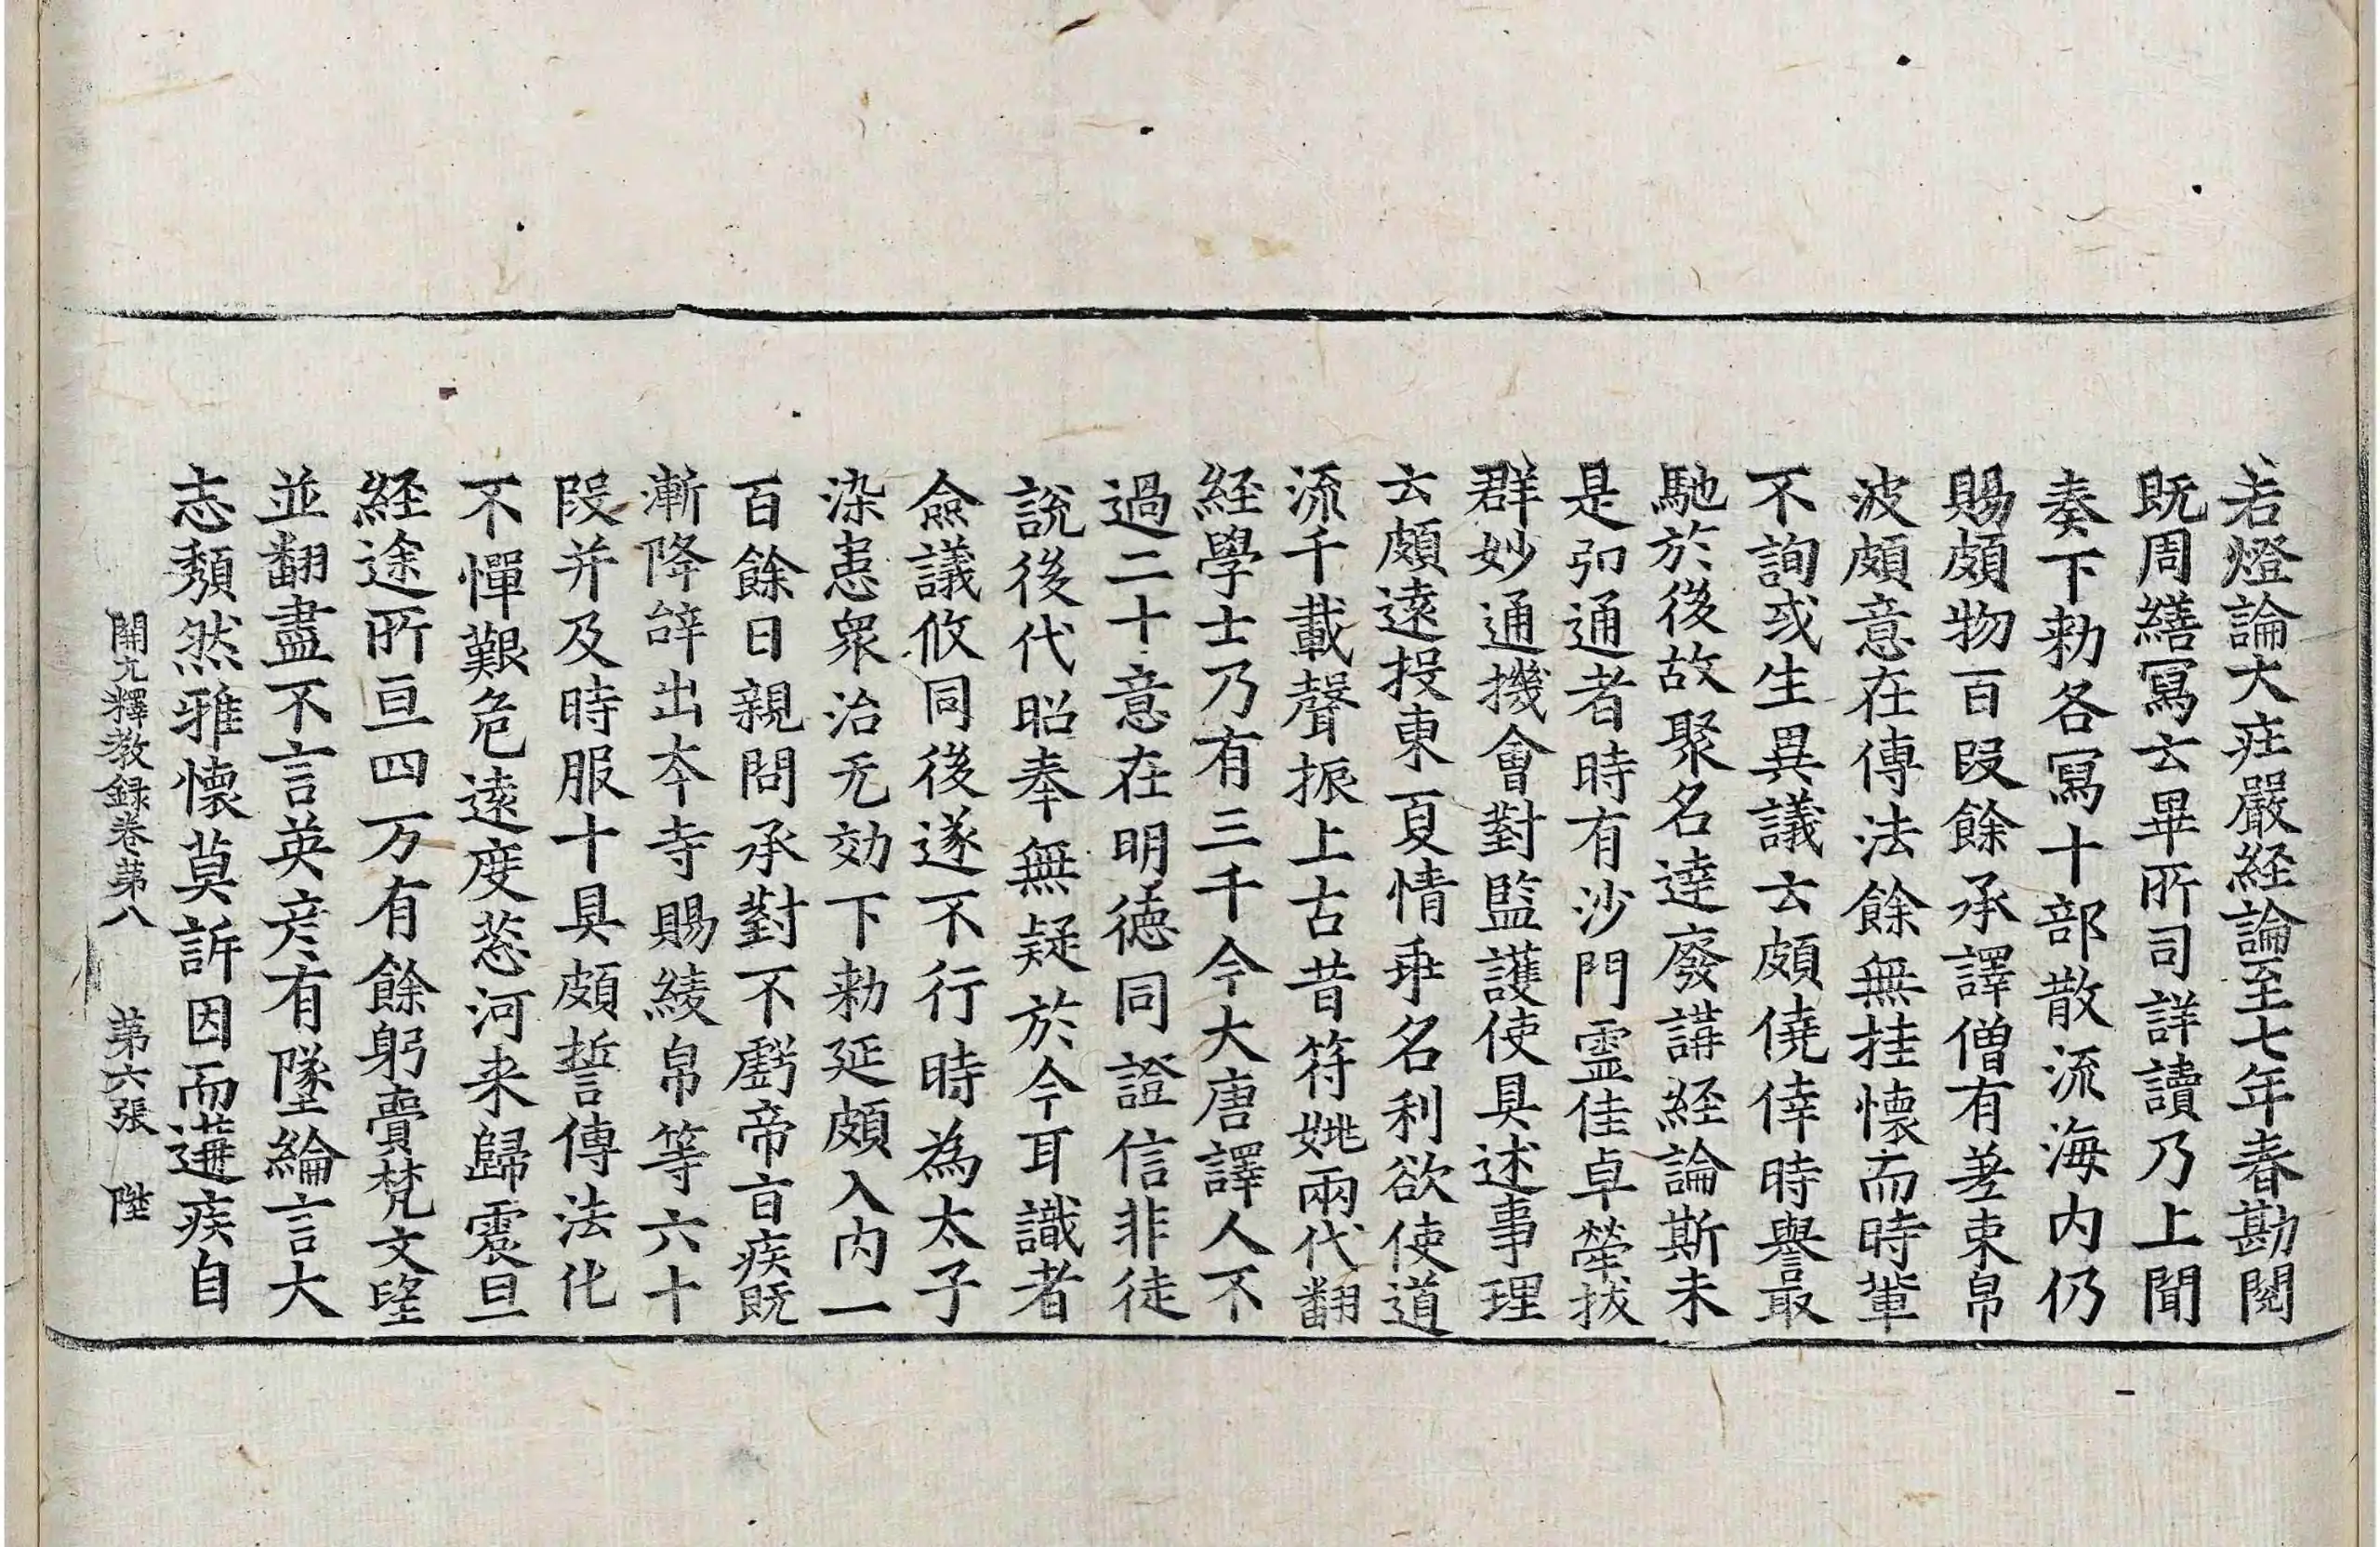 若燈論大莊嚴経論至七年春勘閱
既周繕寫云畢所司詳讀乃上聞
奏下勑各寫十部散流海内仍
賜頗物百段餘承譯僧有差束帛
波頗意在傳法餘無挂懷而時輩
不詢或生異議云頗僥倖時譽最
馳於後故聚名達廢講経論斯未
是弘通者時有沙門霊佳卓犖拔
群妙通機會對監護使具述事理
云頗遠投東夏情乖名利欲使道
流千載聲振上古昔符姚兩代翻
経學士乃有三千今大唐譯人不
過二十意在明德同證信非徒
說後代昭奉無疑於今耳識者
僉議攸同後遂不行時為太子
染患衆治无効下勑延頗入内一
百餘日親問承對不虧帝旨疾既
漸降辝出夲寺賜綾帛等六十
段并及時服十具頗誓傳法化
不憚艱危遠度葱河来歸震旦
経途所亘四万有餘躬賷梵文望
並翻盡不言英彦有墜綸言大
志頽然雅懷莫訴因而遘疾自
開元釋教録卷苐八 苐六張 陛